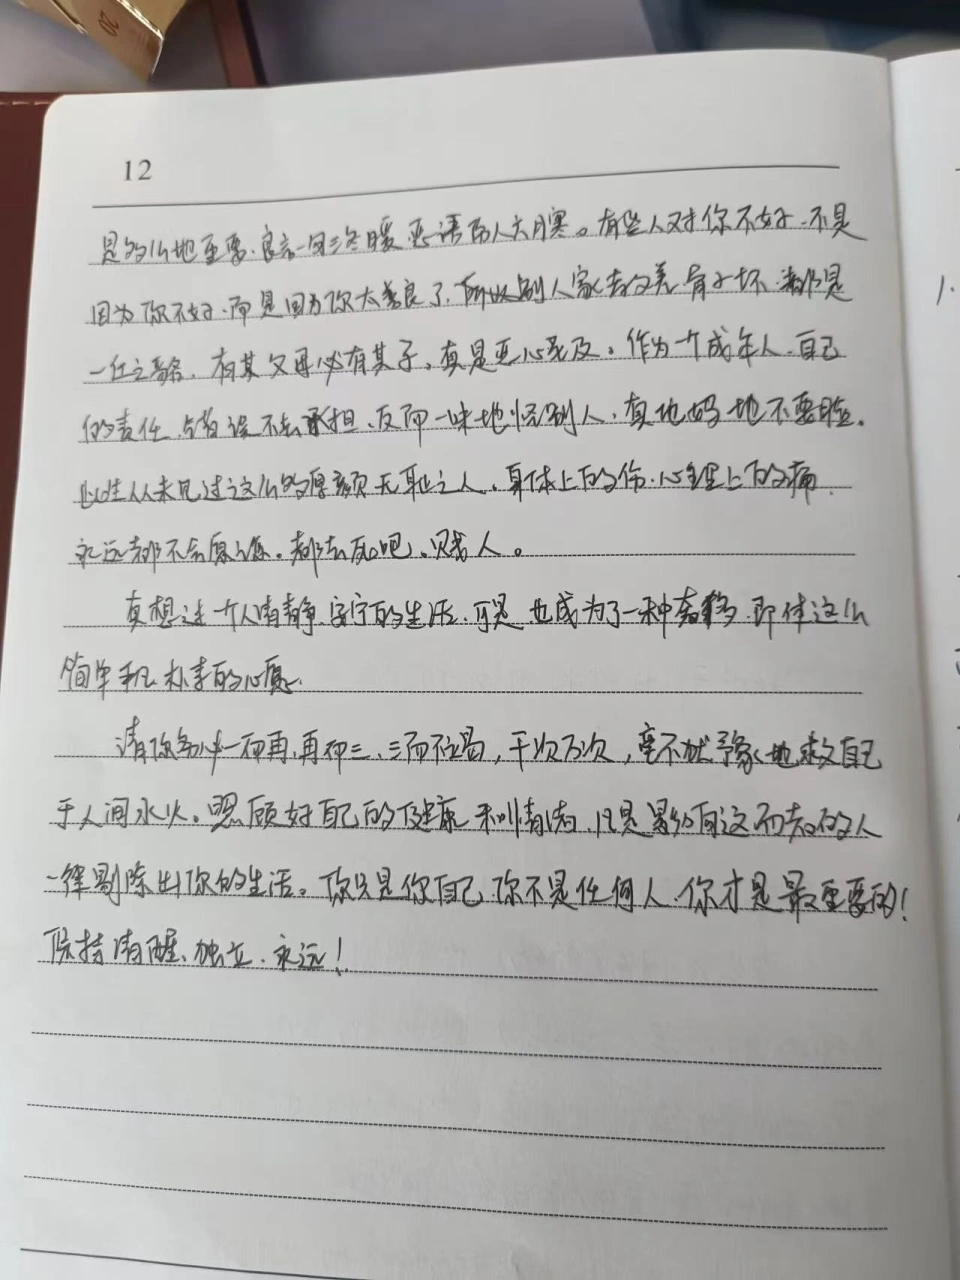 12
是多么地重要、良言一句三冬暖，恶语伤人六月寒。有些人对你不好，不是
因为你不好，而是因为你太善良了，所以别人家教的差、骨子坏，都是
一丘之貉，有其父母必有其子，真是恶心至及。作为一个成年人，自己
的责任、错误不去承担、反而一味地怪别人，真他妈地不要脸。
此生从未见过这么的厚颜无耻之人，身体上的伤，心理上的痛，
永远都不会原谅。都去死吧，贱人。
真想过一个人清静、安宁的生活，可是也成为了一种奢移，即使这么
简单和朴素的心愿。
请你务必一而再，再而三、三而不竭，千次万次，毫不犹豫地救自己
于人间水火。照顾好自己的健康和情绪，凡是影响这两者的人
一律剔除出你的生活。你只是你自己，你不是任何人，你才是最重要的！
保持清醒、独立，永远！
1.